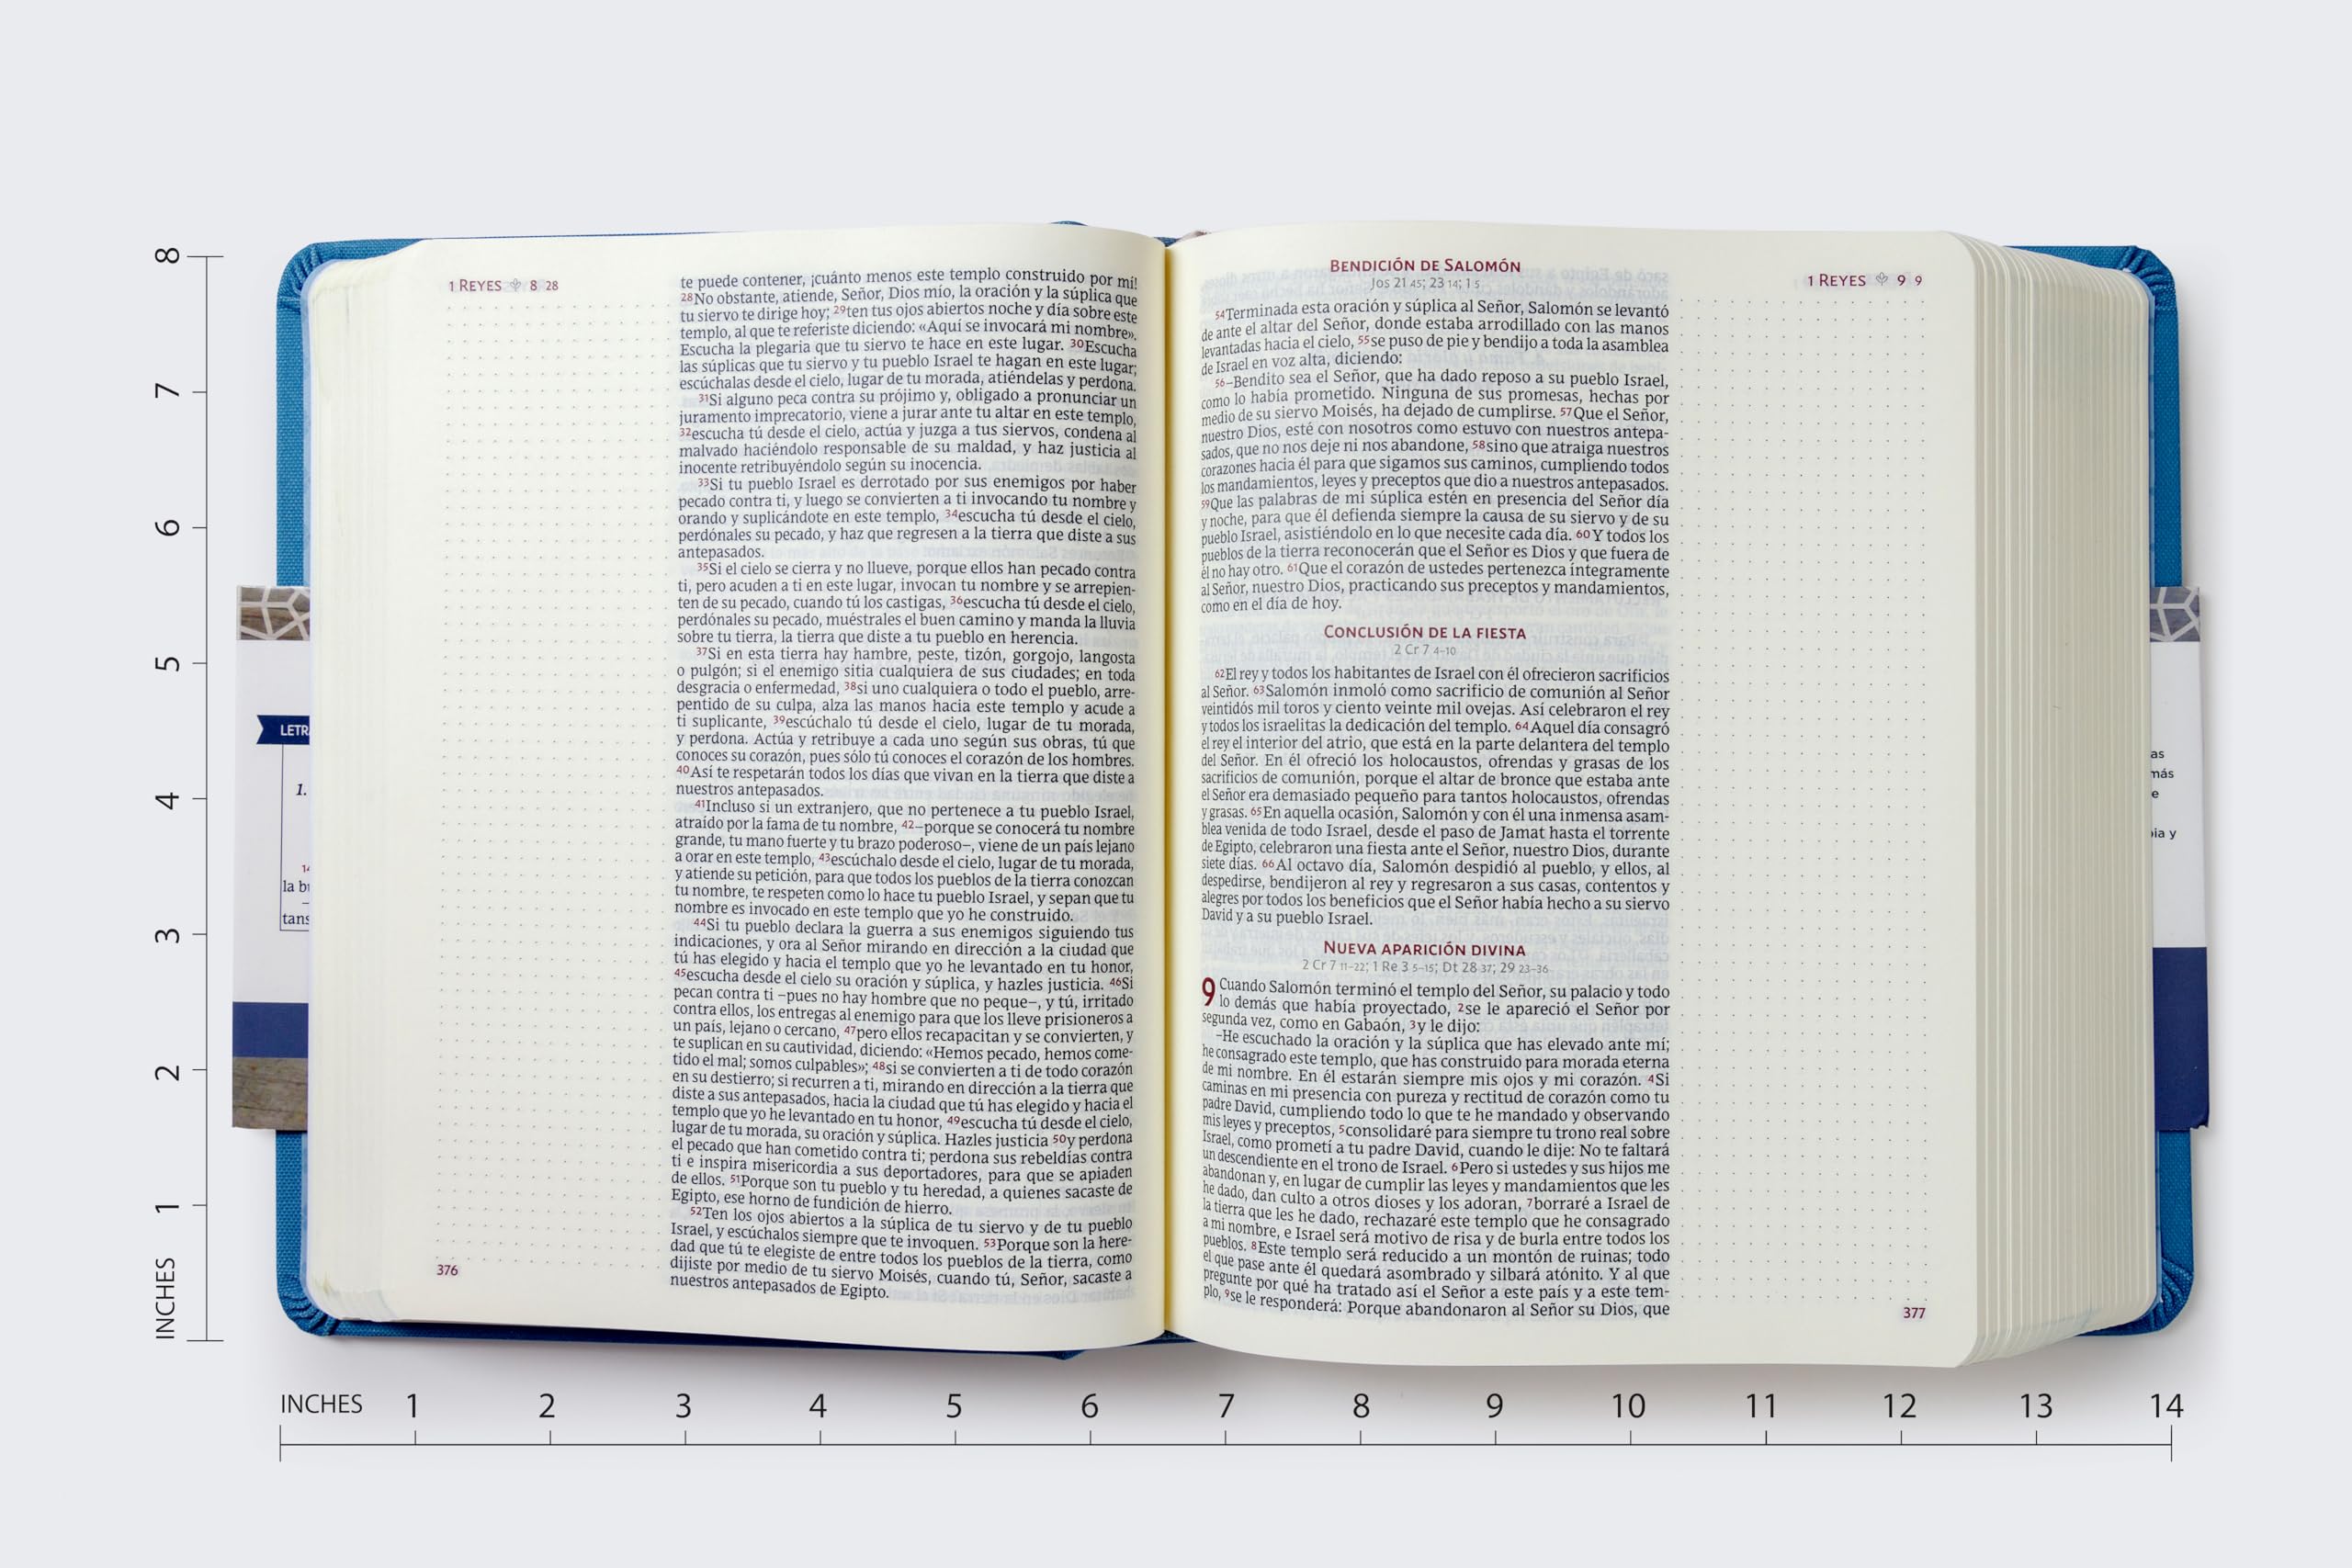 8
7
6
5
4
3
2
1
INCHES
LETR
1.
14
la b
tans
1 REYES 8 28
te puede contener, ¡cuánto menos este templo construido por mí!
28No obstante, atiende, Señor, Dios mío, la oración y la súplica que
tu siervo te dirige hoy; 29ten tus ojos abiertos noche y día sobre este
templo, al que te referiste diciendo: «Aquí se invocará mi nombre».
Escucha la plegaria que tu siervo te hace en este lugar. 30Escucha
las súplicas que tu siervo y tu pueblo Israel te hagan en este lugar;
escúchalas desde el cielo, lugar de tu morada, atiéndelas y perdona.
31Si alguno peca contra su prójimo y, obligado a pronunciar un
juramento imprecatorio, viene a jurar ante tu altar en este templo,
32escucha tú desde el cielo, actúa y juzga a tus siervos, condena al
malvado haciéndolo responsable de su maldad, y haz justicia al
inocente retribuyéndolo según su inocencia.
33Si tu pueblo Israel es derrotado por sus enemigos por haber
pecado contra ti, y luego se convierten a ti invocando tu nombre y
orando y suplicándote en este templo, 34escucha tú desde el cielo,
perdónales su pecado, y haz que regresen a la tierra que diste a sus
antepasados.
35Si el cielo se cierra y no llueve, porque ellos han pecado contra
ti, pero acuden a ti en este lugar, invocan tu nombre y se arrepien-
ten de su pecado, cuando tú los castigas, 36escucha tú desde el cielo,
perdónales su pecado, muéstrales el buen camino y manda la lluvia
sobre tu tierra, la tierra que diste a tu pueblo en herencia.
37Si en esta tierra hay hambre, peste, tizón, gorgojo, langosta
o pulgón; si el enemigo sitia cualquiera de sus ciudades; en toda
desgracia o enfermedad, 38si uno cualquiera o todo el pueblo, arre-
pentido de su culpa, alza las manos hacia este templo y acude a
ti suplicante, 39escúchalo tú desde el cielo, lugar de tu morada,
y perdona. Actúa y retribuye a cada uno según sus obras, tú que
conoces su corazón, pues sólo tú conoces el corazón de los hombres.
40Así te respetarán todos los días que vivan en la tierra que diste a
nuestros antepasados.
41Incluso si un extranjero, que no pertenece a tu pueblo Israel,
atraído por la fama de tu nombre, 42–porque se conocerá tu nombre
grande, tu mano fuerte y tu brazo poderoso–, viene de un país lejano
a orar en este templo, 43escúchalo desde el cielo, lugar de tu morada,
y atiende su petición, para que todos los pueblos de la tierra conozcan
tu nombre, te respeten como lo hace tu pueblo Israel, y sepan que tu
nombre es invocado en este templo que yo he construido.
44Si tu pueblo declara la guerra a sus enemigos siguiendo tus
indicaciones, y ora al Señor mirando en dirección a la ciudad que
tú has elegido y hacia el templo que yo he levantado en tu honor,
45escucha desde el cielo su oración y súplica, y hazles justicia. 46Si
pecan contra ti –pues no hay hombre que no peque–, y tú, irritado
contra ellos, los entregas al enemigo para que los lleve prisioneros a
un país, lejano o cercano, 47pero ellos recapacitan y se convierten, y
te suplican en su cautividad, diciendo: «Hemos pecado, hemos come-
tido el mal; somos culpables»; 48si se convierten a ti de todo corazón
en su destierro; si recurren a ti, mirando en dirección a la tierra que
diste a sus antepasados, hacia la ciudad que tú has elegido y hacia el
templo que yo he levantado en tu honor, 49escucha tú desde el cielo,
lugar de tu morada, su oración y súplica. Hazles justicia 50y perdona
el pecado que han cometido contra ti; perdona sus rebeldías contra
ti e inspira misericordia a sus deportadores, para que se apiaden
de ellos. 51Porque son tu pueblo y tu heredad, a quienes sacaste de
Egipto, ese horno de fundición de hierro.
52Ten los ojos abiertos a la súplica de tu siervo y de tu pueblo
Israel, y escúchalos siempre que te invoquen. 53Porque son la here-
dad que tú te elegiste de entre todos los pueblos de la tierra, como
dijiste por medio de tu siervo Moisés, cuando tú, Señor, sacaste a
nuestros antepasados de Egipto.
376
BENDICIÓN DE SALOMÓN
Jos 21 45; 23 14; 1 5
1 REYES 9 9
54Terminada esta oración y súplica al Señor, Salomón se levantó
de ante el altar del Señor, donde estaba arrodillado con las manos
levantadas hacia el cielo, 55se puso de pie y bendijo a toda la asamblea
de Israel en voz alta, diciendo:
56–Bendito sea el Señor, que ha dado reposo a su pueblo Israel,
como lo había prometido. Ninguna de sus promesas, hechas por
medio de su siervo Moisés, ha dejado de cumplirse. 57Que el Señor,
nuestro Dios, esté con nosotros como estuvo con nuestros antepa-
sados, que no nos deje ni nos abandone, 58sino que atraiga nuestros
corazones hacia él para que sigamos sus caminos, cumpliendo todos
los mandamientos, leyes y preceptos que dio a nuestros antepasados.
59Que las palabras de mi súplica estén en presencia del Señor día
y noche, para que él defienda siempre la causa de su siervo y de su
pueblo Israel, asistiéndolo en lo que necesite cada día. 60Y todos los
pueblos de la tierra reconocerán que el Señor es Dios y que fuera de
él no hay otro. 61Que el corazón de ustedes pertenezca íntegramente
al Señor, nuestro Dios, practicando sus preceptos y mandamientos,
como en el día de hoy.
CONCLUSIÓN DE LA FIESTA
2 Cr 7 4–10
62El rey y todos los habitantes de Israel con él ofrecieron sacrificios
al Señor. 63Salomón inmoló como sacrificio de comunión al Señor
veintidós mil toros y ciento veinte mil ovejas. Así celebraron el rey
y todos los israelitas la dedicación del templo. 64Aquel día consagró
el rey el interior del atrio, que está en la parte delantera del templo
del Señor. En él ofreció los holocaustos, ofrendas y grasas de los
sacrificios de comunión, porque el altar de bronce que estaba ante
el Señor era demasiado pequeño para tantos holocaustos, ofrendas
y grasas. 65En aquella ocasión, Salomón y con él una inmensa asam-
blea venida de todo Israel, desde el paso de Jamat hasta el torrente
de Egipto, celebraron una fiesta ante el Señor, nuestro Dios, durante
siete días. 66Al octavo día, Salomón despidió al pueblo, y ellos, al
despedirse, bendijeron al rey y regresaron a sus casas, contentos y
alegres por todos los beneficios que el Señor había hecho a su siervo
David y a su pueblo Israel.
NUEVA APARICIÓN DIVINA
2 Cr 7 11–22; 1 Re 3 5–15; Dt 28 37; 29 23–36
9 Cuando Salomón terminó el templo del Señor, su palacio y todo
lo demás que había proyectado, 2se le apareció el Señor por
segunda vez, como en Gabaón, 3y le dijo:
–He escuchado la oración y la súplica que has elevado ante mí;
he consagrado este templo, que has construido para morada eterna
de mi nombre. En él estarán siempre mis ojos y mi corazón. 4Si
caminas en mi presencia con pureza y rectitud de corazón como tu
padre David, cumpliendo todo lo que te he mandado y observando
mis leyes y preceptos, 5consolidaré para siempre tu trono real sobre
Israel, como prometí a tu padre David, cuando le dije: No te faltará
un descendiente en el trono de Israel. 6Pero si ustedes y sus hijos me
abandonan y, en lugar de cumplir las leyes y mandamientos que les
he dado, dan culto a otros dioses y los adoran, 7borraré a Israel de
la tierra que les he dado, rechazaré este templo que he consagrado
a mi nombre, e Israel será motivo de risa y de burla entre todos los
pueblos. 8Este templo será reducido a un montón de ruinas; todo
el que pase ante él quedará asombrado y silbará atónito. Y al que
pregunte por qué ha tratado así el Señor a este país y a este tem-
plo, 9se le responderá: Porque abandonaron al Señor su Dios, que
377
as
más
e
ia y
INCHES 1 2 3 4 5 6 7 8 9 10 11 12 13 14